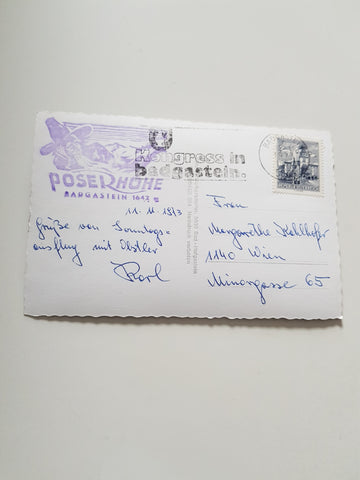 POSERHÖHE
BADGASTEIN 1643 m
Kongress in
badgastein.
11. 11. 1973
Grüße von Sonntags-
ausflug mit Obstler
Karl
Frau
Margarethe
1140 Wien
Minorgasse 65